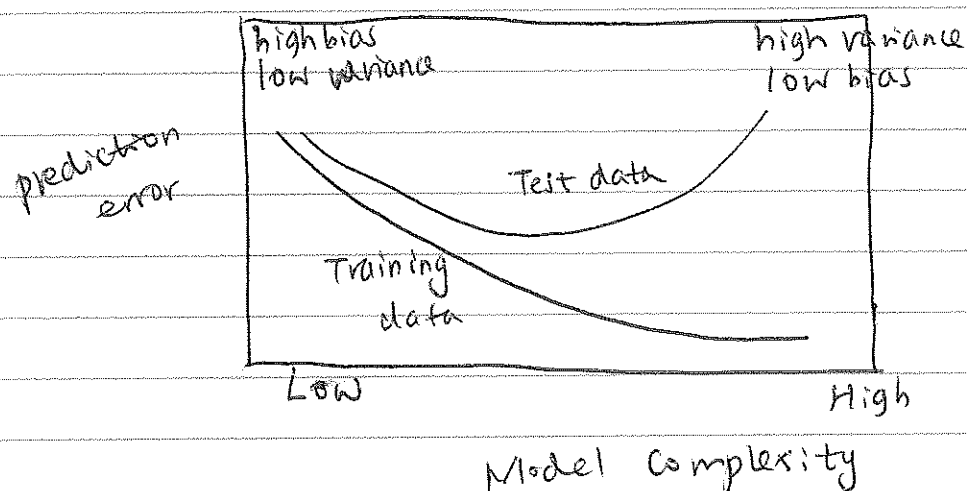 high bias
low variance
high variance
low bias
prediction
error
Test data
Training
data
Low
High
Model Complexity